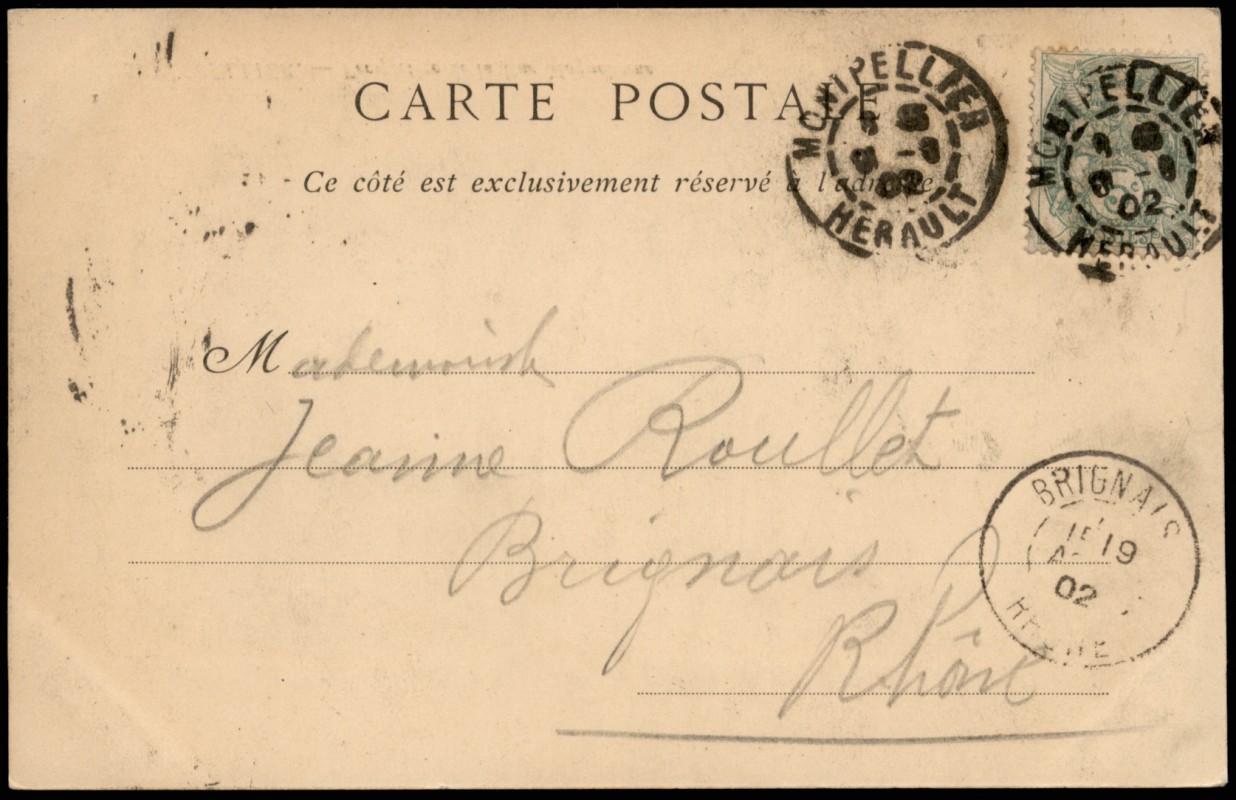 CARTE POSTALE
Ce côté est exclusivement réservé à l'adresse
MONTPELLIER
02
HÉRAULT
MONTPELLIER
02
HÉRAULT
Mademoiselle
Jeanne Roullet
Brignais
Rhône
BRIGNAIS
19
02
RHONE